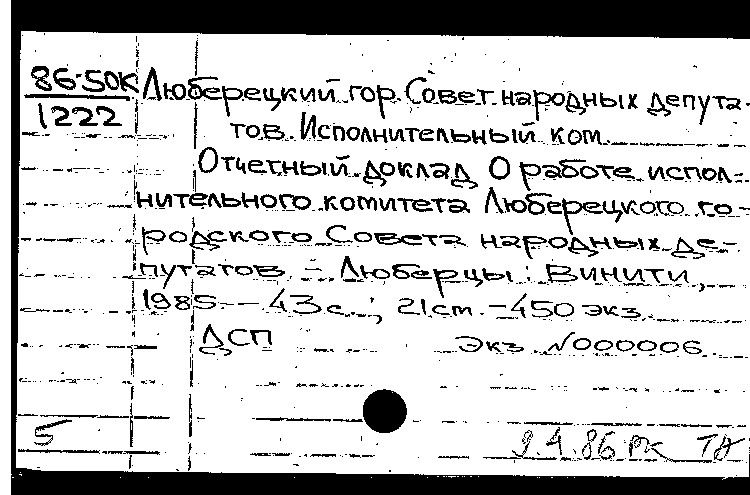 86-50К Люберецкий гор. Совет народных депута-
1222 тов. Исполнительный ком.
Отчетный доклад О работе испол-
нительного комитета Люберецкого го-
родского Совета народных де-
путатов. - Люберцы: ВИНИТИ,
1985. - 43 с.; 21 см. - 450 экз.
ДСП Экз. №000006.
5 9.4.86 РК